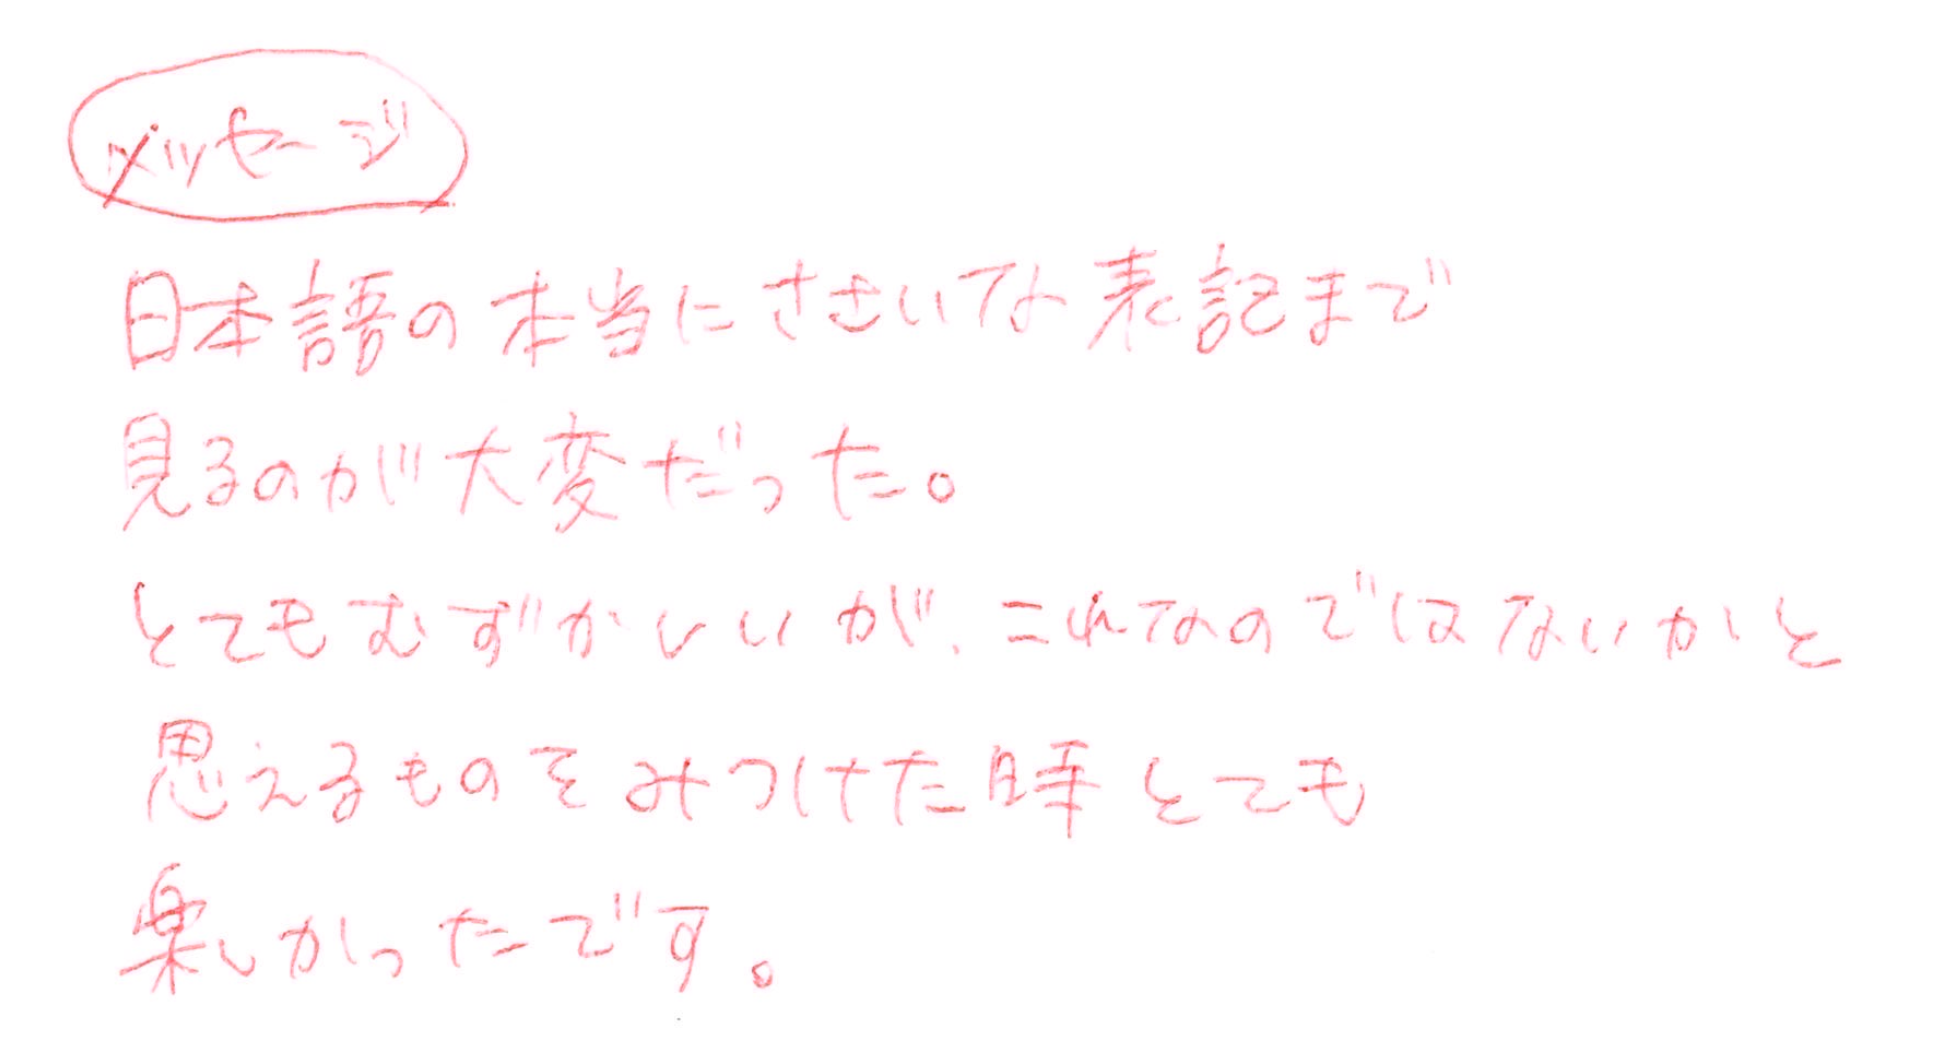 メッセージ
日本語の本当にささいな表記まで
見るのが大変だった。
とてもむずかしいが、これなのではないかと
思えるものをみつけた時とても
楽しかったです。